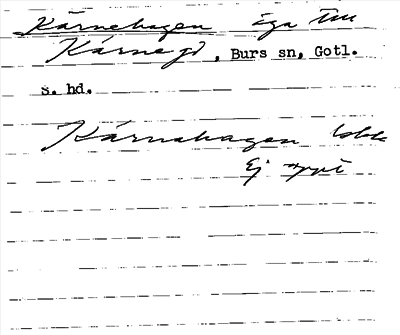 Kärnehagen äga till
Kärne gd, Burs sn, Gotl.
S. hd.
Kärnehagen
Ej uppt